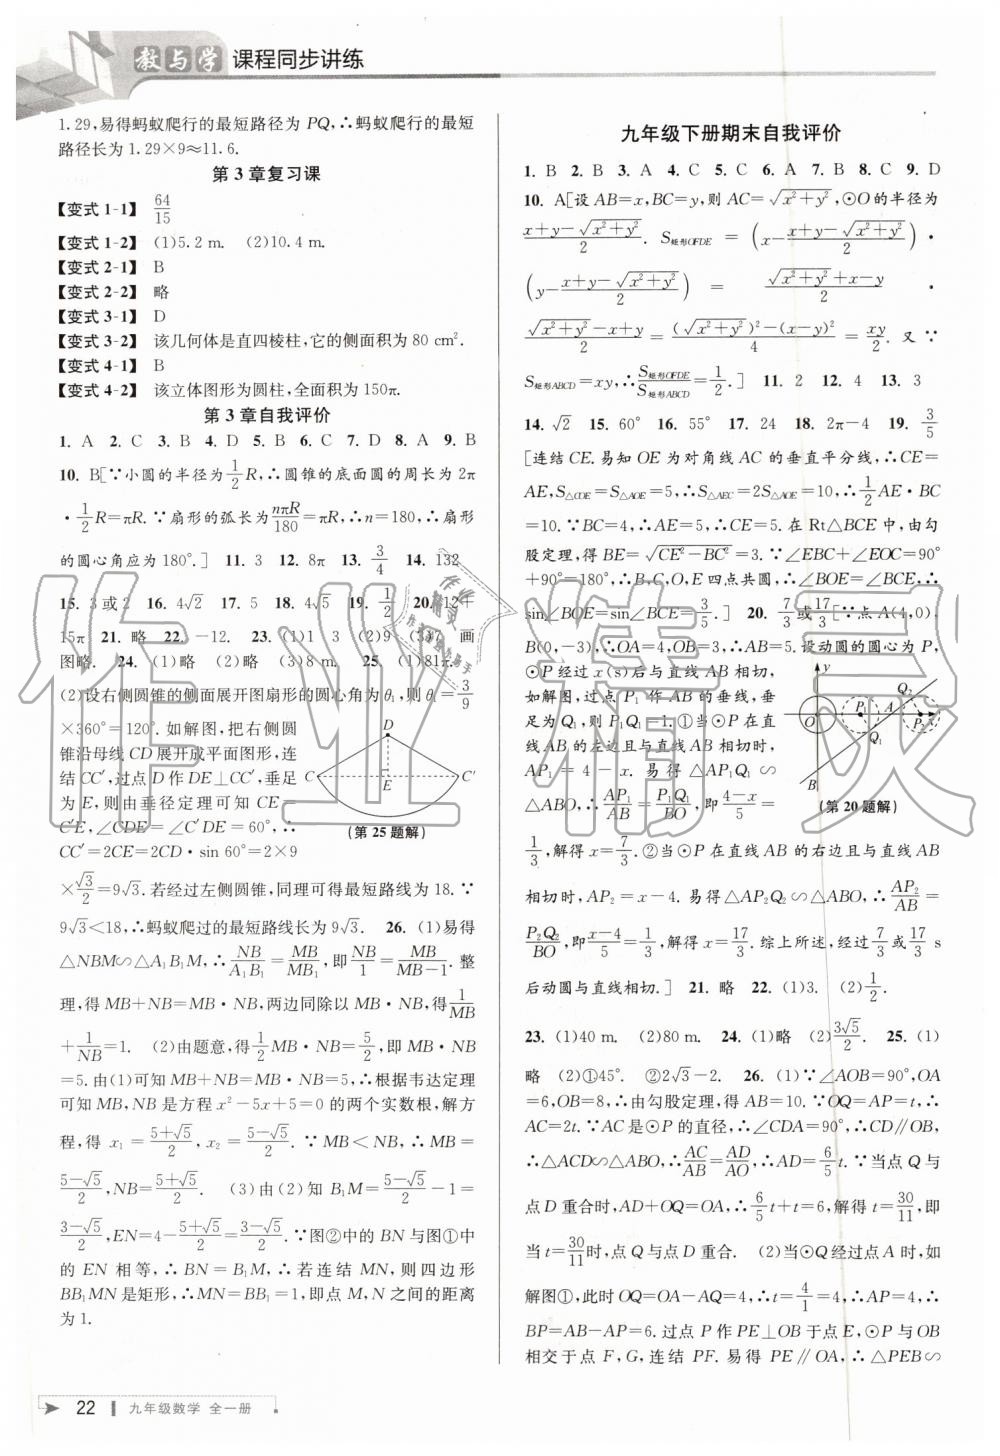 教与学 课程同步讲练
1.29,易得蚂蚁爬行的最短路径为 PQ,∴蚂蚁爬行的最短
路径长为 1.29×9≈11.6.
第 3 章复习课
【变式 1-1】 64/15
【变式 1-2】 (1)5.2 m. (2)10.4 m.
【变式 2-1】 B
【变式 2-2】 略
【变式 3-1】 D
【变式 3-2】 该几何体是直四棱柱,它的侧面积为 80 cm².
【变式 4-1】 B
【变式 4-2】 该立体图形为圆柱,全面积为 150π.
第 3 章自我评价
1. A 2. C 3. B 4. D 5. B 6. C 7. D 8. A 9. B
10. B[∵小圆的半径为1/2R,∴圆锥的底面圆的周长为 2π
·1/2R=πR.∵扇形的弧长为nπR/180=πR,∴n=180,∴扇形
的圆心角应为 180°.] 11. 3 12. 8π 13. 3/4 14. 132
15. 3 或 2 16. 4√2 17. 5 18. 4√5 19. 1/2 20. 12+
15π 21. 略 22. -12. 23. (1)1 3 (2)9 (3)7 画
图略. 24. (1)略 (2)略 (3)8 m. 25. (1)81π.
(2)设右侧圆锥的侧面展开图扇形的圆心角为θ₁,则θ₁=3/9
×360°=120°.如解图,把右侧圆
锥沿母线 CD 展开成平面图形,连
结 CC′,过点 D 作 DE⊥CC′,垂足
为 E,则由垂径定理可知 CE=
C′E,∠CDE=∠C′DE=60°,∴
CC′=2CE=2CD·sin 60°=2×9
D
C
E
C′
(第 25 题解)
×√3/2=9√3.若经过左侧圆锥,同理可得最短路线为 18.∵
9√3<18,∴蚂蚁爬过的最短路线长为 9√3. 26. (1)易得
△NBM∽△A₁B₁M,∴NB/A₁B₁=MB/MB₁,即NB/1=MB/MB-1.整
理,得 MB+NB=MB·NB,两边同除以 MB·NB,得1/MB
+1/NB=1. (2)由题意,得1/2MB·NB=5/2,即 MB·NB
=5.由(1)可知 MB+NB=MB·NB=5,∴根据韦达定理
可知 MB,NB 是方程 x²-5x+5=0 的两个实数根,解方
程,得 x₁=5+√5/2,x₂=5-√5/2.∵MB<NB,∴MB=
5-√5/2,NB=5+√5/2. (3)由(2)知 B₁M=5-√5/2-1=
3-√5/2,EN=4-5+√5/2=3-√5/2.∵图②中的 BN 与图①中
的 EN 相等,∴BN=B₁M,∴若连结 MN,则四边形
BB₁MN 是矩形,∴MN=BB₁=1,即点 M,N 之间的距离
为 1.
九年级下册期末自我评价
1. B 2. B 3. A 4. C 5. C 6. A 7. B 8. C 9. D
10. A[设 AB=x,BC=y,则 AC=√x²+y²,⊙O的半径为
x+y-√x²+y²/2. S矩形OFDE = (x-x+y-√x²+y²/2)·
(y-x+y-√x²+y²/2) = √x²+y²+x-y/2 ·
√x²+y²-x+y/2=(√x²+y²)²-(x-y)²/4=xy/2. 又∵
S矩形ABCD=xy,∴S矩形OFDE/S矩形ABCD=1/2.] 11. 2 12. 4 13. 3
14. √2 15. 60° 16. 55° 17. 24 18. 2π-4 19. 3/5
[连结 CE.易知 OE 为对角线 AC 的垂直平分线,∴CE=
AE,S△COE=S△AOE=5,∴S△AEC=2S△AOE=10,∴1/2AE·BC
=10.∵BC=4,∴AE=5,∴CE=5.在 Rt△BCE 中,由勾
股定理,得 BE=√CE²-BC²=3.∵∠EBC+∠EOC=90°
+90°=180°,∴B,C,O,E 四点共圆,∴∠BOE=∠BCE,∴
sin∠BOE=sin∠BCE=3/5.] 20. 7/3或17/3[∵点A(4,0),
B(0,-3),∴OA=4,OB=3,∴AB=5.设动圆的圆心为 P,
⊙P 经过 x(s)后与直线 AB 相切,
如解图,过点 P₁ 作 AB 的垂线,垂
足为 Q₁,则 P₁Q₁=1.①当⊙P 在直
线 AB 的左边且与直线 AB 相切时,
AP₁=4-x. 易得△AP₁Q₁∽
△ABO,∴AP₁/AB=P₁Q₁/BO,即4-x/5=
y
Q₂
P₁
A
O
P₂
x
Q₁
B
(第 20 题解)
1/3,解得 x=7/3.②当⊙P 在直线 AB 的右边且与直线 AB
相切时,AP₂=x-4.易得△AP₂Q₂∽△ABO,∴AP₂/AB=
P₂Q₂/BO,即x-4/5=1/3,解得 x=17/3.综上所述,经过7/3或17/3 s
后动圆与直线相切.] 21. 略 22. (1)3. (2)1/2.
23. (1)40 m. (2)80 m. 24. (1)略 (2)3√5/2. 25. (1)
略 (2)①45°. ②2√3-2. 26. (1)∵∠AOB=90°,OA
=6,OB=8,∴由勾股定理,得 AB=10.∵OQ=AP=t,∴
AC=2t.∵AC是⊙P 的直径,∴∠CDA=90°,∴CD∥OB,
∴△ACD∽△ABO,∴AC/AB=AD/AO,∴AD=6/5t.∵当点 Q 与
点 D 重合时,AD+OQ=OA,∴6/5t+t=6,解得 t=30/11,即
当 t=30/11时,点 Q 与点 D 重合. (2)当⊙Q 经过点 A 时,如
解图①,此时 OQ=OA-AQ=4,∴t=4/1=4,∴AP=4,∴
BP=AB-AP=6.过点 P 作 PE⊥OB 于点 E,⊙P 与 OB
相交于点 F,G,连结 PF.易得 PE∥OA,∴△PEB∽
22 九年级数学 全一册
作业精灵